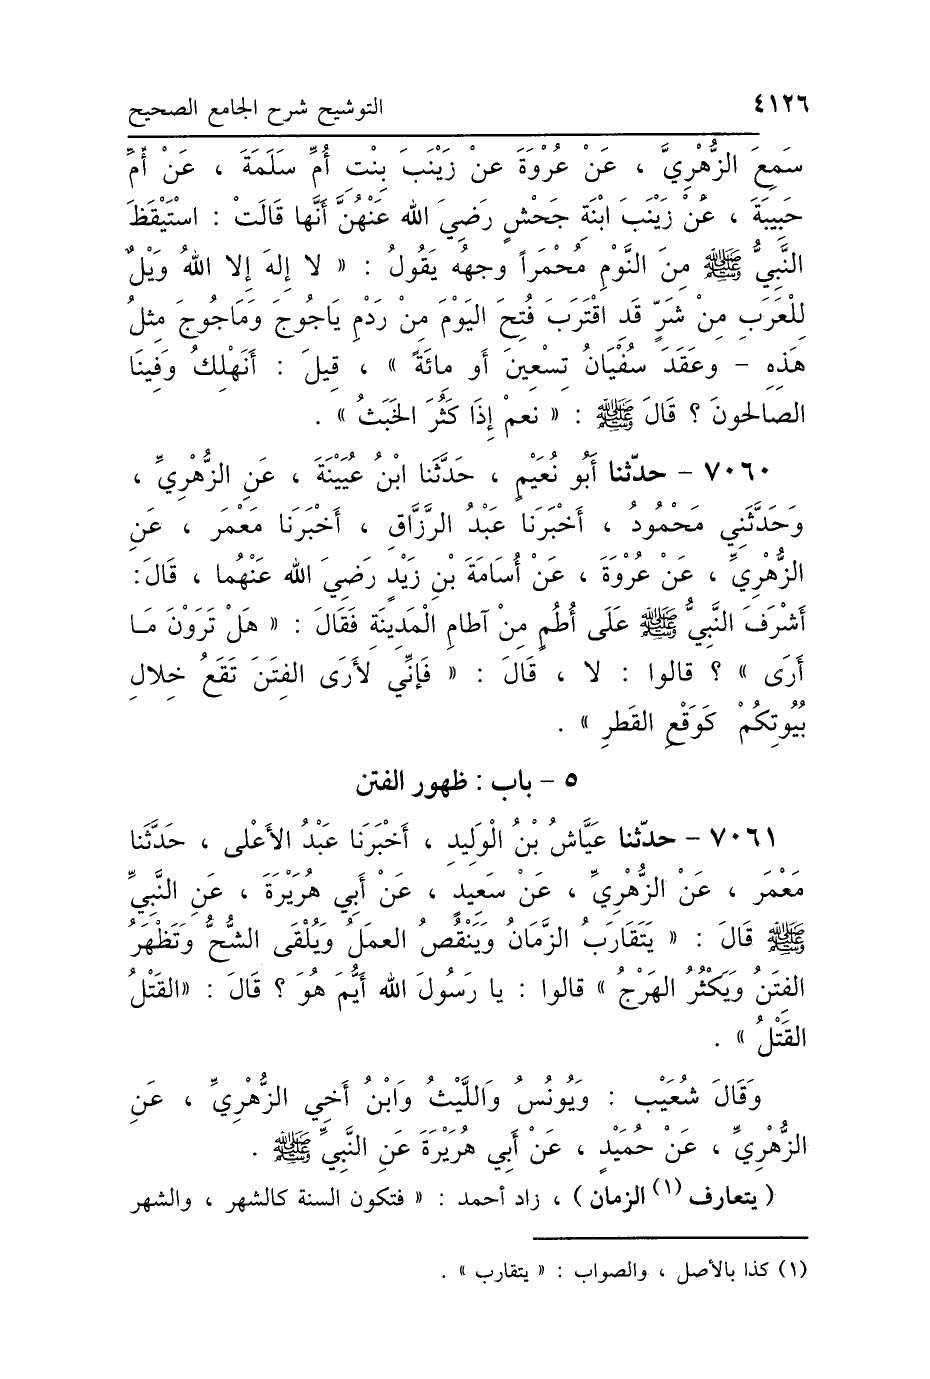 ٤١٢٦ التوشيح شرح الجامع الصحيح
سَمِعَ الزُّهْرِيَّ ، عَنْ عُرْوَةَ عنْ زَيْنَبَ بِنْتِ أُمِّ سَلَمَةَ ، عَنْ أُمِّ
حَبِيبَةَ ، عَنْ زَيْنَبَ ابْنَةِ جَحْشٍ رَضِيَ الله عَنْهُنَّ أَنَّها قَالَتْ : اسْتَيْقَظَ
النَّبِيُّ ﷺ مِنَ النَّوْمِ مُحْمَراً وجهُه يَقُولُ : « لا إلهَ إلا اللهُ وَيْلٌ
لِلْعَرَبِ مِنْ شَرٍّ قَدِ اقْتَرَبَ فُتِحَ اليَوْمَ مِنْ رَدْمِ يَاجُوجَ وَمَاجُوجَ مِثلُ
هَذِهِ – وعَقَدَ سُفْيَانُ تِسْعِينَ أو مائَةً » ، قِيلَ : أَنَهْلِكُ وَفِينَا
الصَالحونَ ؟ قَالَ ﷺ : « نعمْ إذَا كَثُرَ الخَبَثُ » .
٧٠٦٠ – حدّثنا أَبُو نُعَيْمٍ ، حَدَّثَنا ابْنُ عُيَيْنَةَ ، عَنِ الزُّهْرِيِّ ،
وَحَدَّثَنِي مَحْمُودُ ، أَخْبَرَنا عَبْدُ الرَّزَّاقِ ، أَخْبَرَنَا مَعْمَر ، عَنِ
الزُّهْرِيِّ ، عَنْ عُرْوَةَ ، عَنْ أُسَامَةَ بْنِ زَيْدٍ رَضِيَ الله عَنْهُما ، قَالَ:
أَشْرَفَ النَّبِيُّ ﷺ عَلَى أُطُمٍ مِنْ آطامِ الْمَدِينَةِ فَقَالَ : « هَلْ تَرَوْنَ مَا
أَرَى » ؟ قالوا : لا ، قَالَ : « فَإِنِّي لأَرَى الفِتَنَ تَقَعُ خِلالِ
بُيُوتِكُمْ كَوَقْعِ القَطرِ » .
٥ – باب : ظهور الفتن
٧٠٦١ – حدّثنا عَيَّاشُ بْنُ الْوَلِيدِ ، أَخْبَرَنَا عَبْدُ الأَعْلى ، حَدَّثَنا
مَعْمَر ، عَنْ الزُّهْرِيِّ ، عَنْ سَعِيدٍ ، عَنْ أَبِي هُرَيْرَةَ ، عَنِ النَّبِيِّ
ﷺ قَالَ : « يَتَقَارَبُ الزَّمَانُ وَيَنْقُصُ العمَلُ وَيُلْقَى الشُّحُّ وَتَظْهَرُ
الفتَنُ وَيَكْثُرُ الهَرْجُ » قالوا : يا رَسُولَ الله أَيُّمَ هُوَ ؟ قالَ : «القَتْلُ
القَتْلُ » .
وَقَالَ شُعَيْب : وَيُونُسُ وَاللَّيْثُ وَابْنُ أَخِي الزُّهْرِيِّ ، عَنِ
الزُّهْرِيِّ ، عَنْ حُمَيْدٍ ، عَنْ أَبِي هُرَيْرَةَ عَنِ النَّبِيِّ ﷺ .
( يتعارف (١) الزمان ) ، زاد أحمد : « فتكون السنة كالشهر ، والشهر
(١) كذا بالأصل ، والصواب : « يتقارب » .